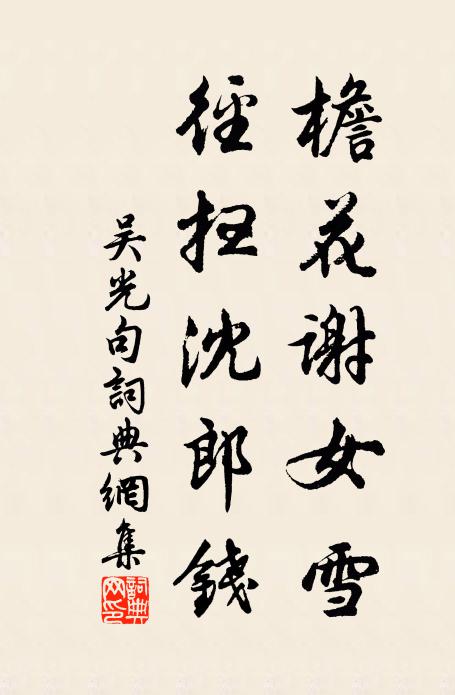 檐花謝女雪
徑扫沈郎錢
吴光句詞典網集
詞典
网印